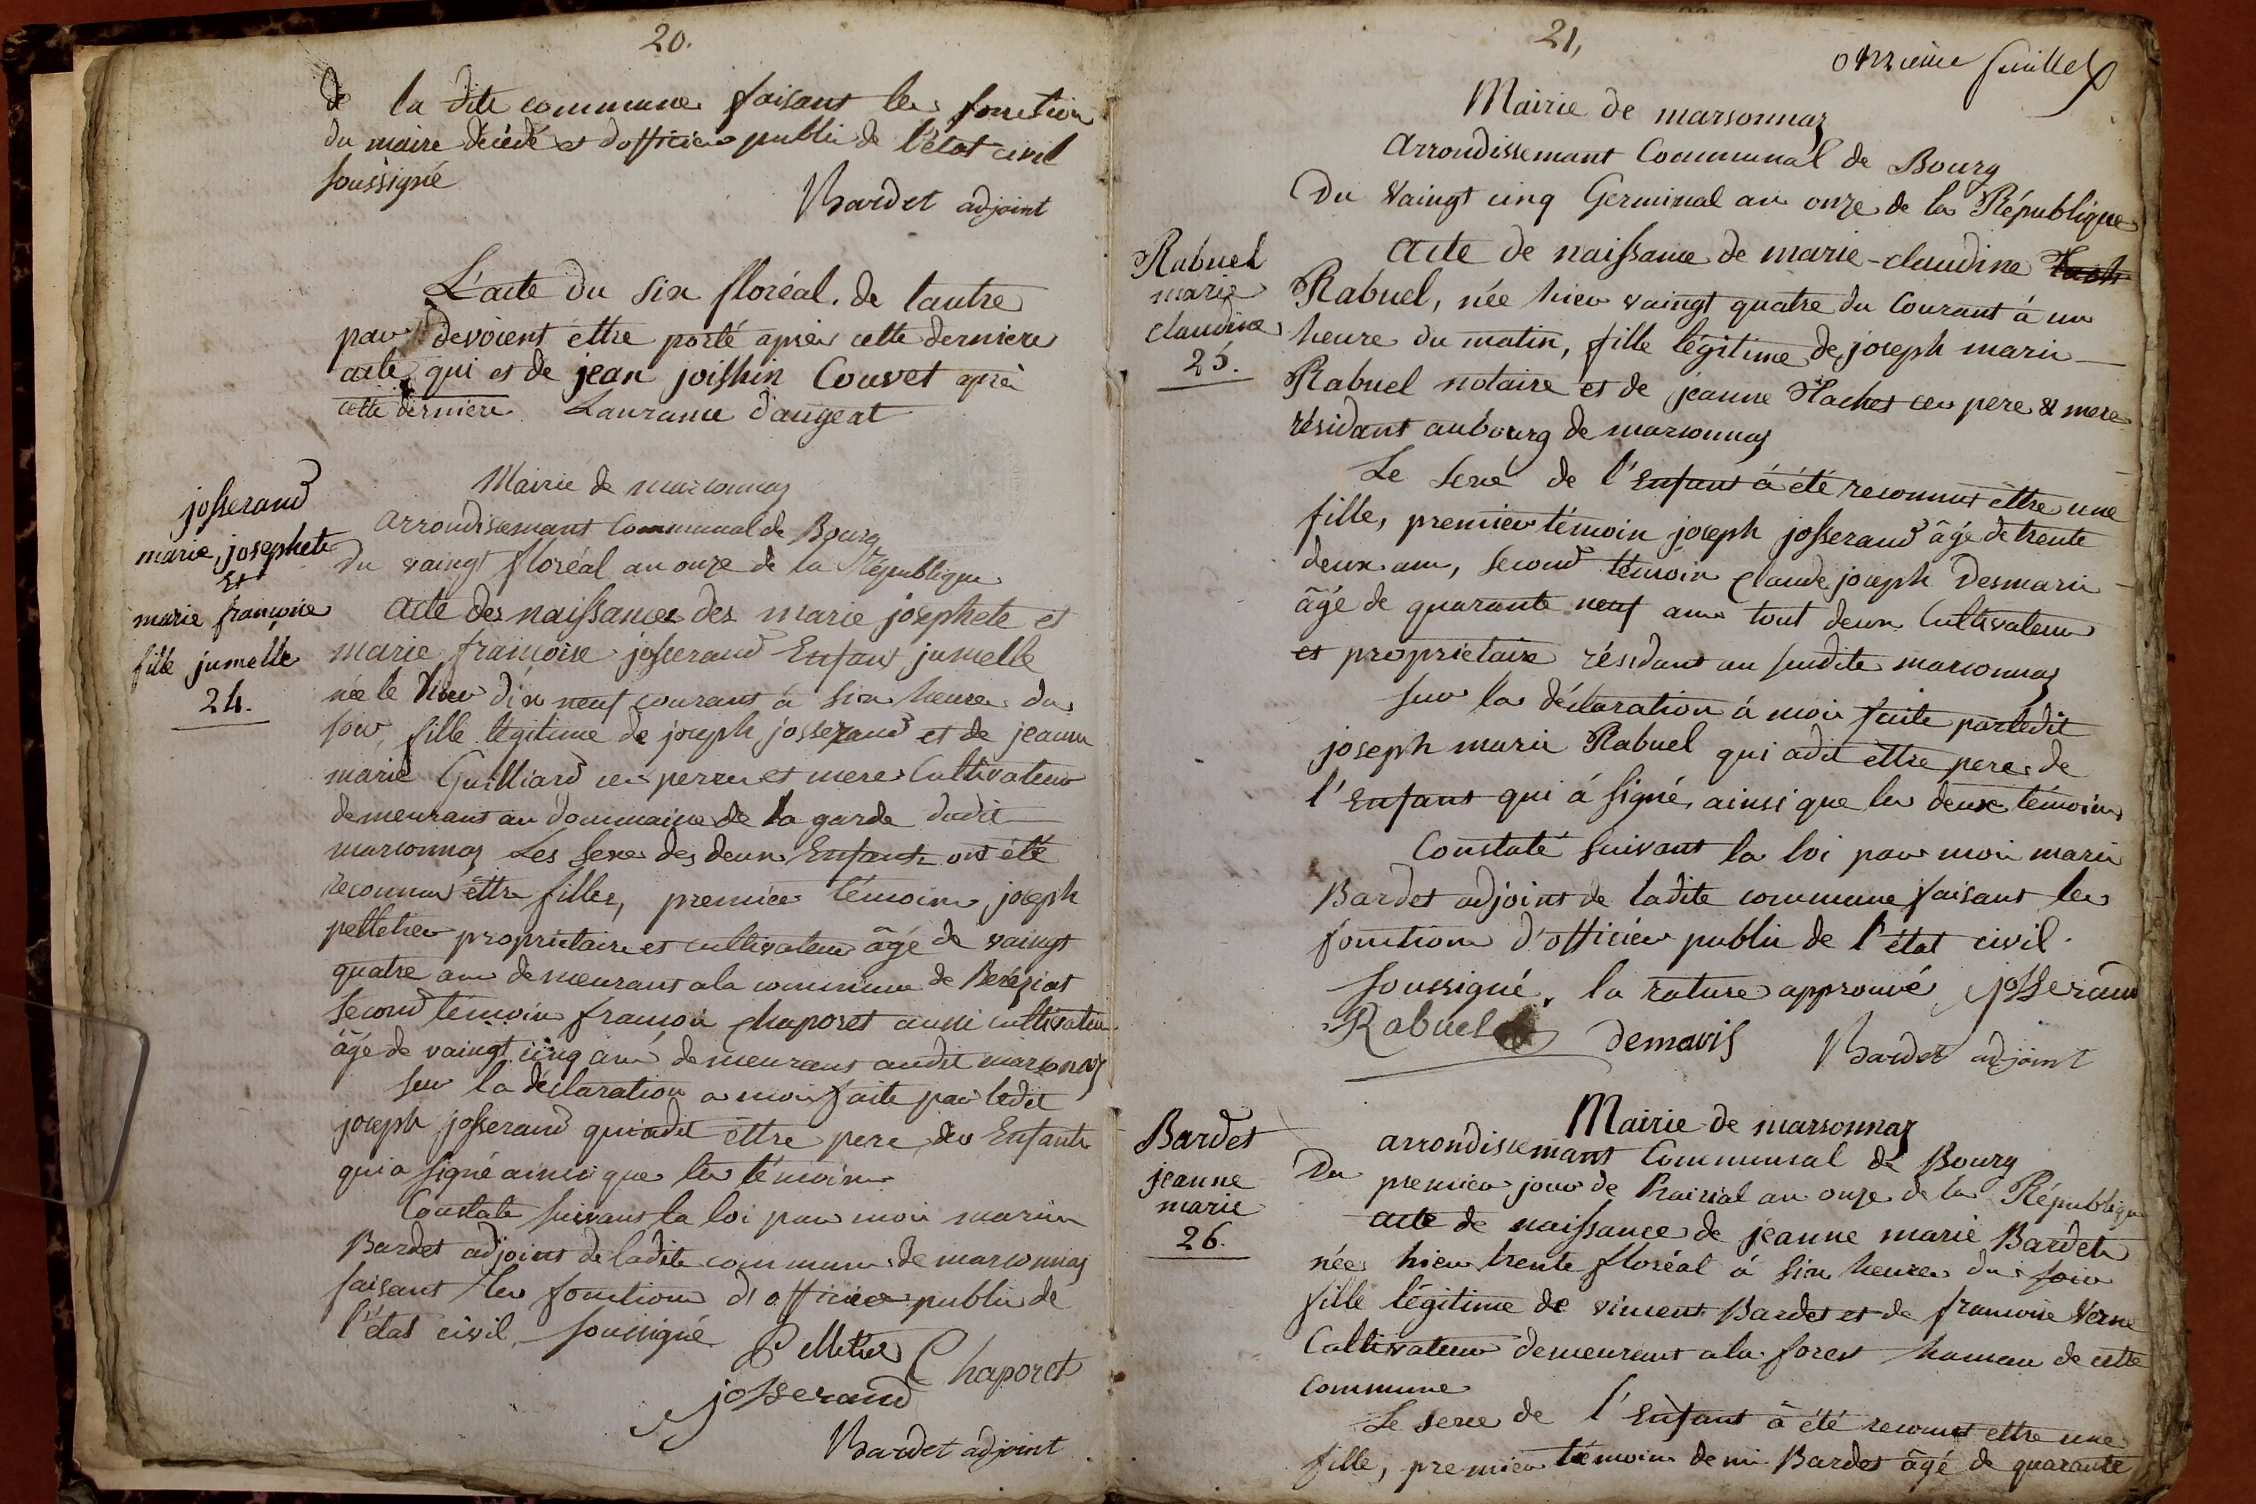 20.
de la dite commune faisant les fonction
du maire décédé et dofficier public de l'état civil
soussigné
Bardet adjoint
L'acte du six floréal. de lautre
par devoient éttre porté après cette derniere
acte qui est de jean Couvet après
cette derniere Laurance daugeat
josserand
marie josephete
Et
marie françoise
fille jumelle
24.
Mairie de marsonnaz
arrondissemant Communal de Bourg
Du vaingt floréal an onze de la République
acte des naissances des marie josephete et
marie françoise josserand Enfant jumelle
née le hier dix neuf courant à six heures du
soir, fille légitime de joseph josserand et de jeanne
marie Guilliard ces perre et mere Cultivateur
demeurant au dommaine de la garde dudit
marsonnaz Les sexe des deux Enfants ont été
reconnus éttre filles, premier témoin joseph
pelletier propriétaire et cultivateur âgé de vaingt
quatre ans demeurant ala commune de Beréziat
second témoin françois Chaporet aussi cultivateur
âgé de vaingt cinq ans demeurant audit marsonnaz
sur la déclaration a moi faite par ledit
joseph josserand qui adit éttre pere des Enfants
qui a signé ainsi que les témoins
Constaté suivant la loi par moi marin
Bardet adjoint de ladite commune de marsonnaz
faisant les fonctions d'officier public de
l'état civil soussigné
Pelletier Chaporet
josserand
Bardet adjoint
21,
onzième feuillet
Mairie de marsonnaz
arrondissemant Communal de Bourg
Du Vaingt cinq Germinal an onze de la République
Rabuel
marie
claudine
25.
acte de naissance de marie-claudine
Rabuel, née hier vaingt quatre du Courant à un
heure du matin, fille légitime de joseph marie
Rabuel notaire et de jeanne Hachet ces pere & mere
résidant aubourg de marsonnaz
Le sexe de l'Enfant à été reconnut éttre une
fille, premier témoin joseph josserand âgé de trente
deux ans, second témoin Claude joseph Desmaris
âgé de quarante neuf ans tout deux Cultivateur
et propriétaire résidant au sudite marsonnaz
sur la déclaration à moi faite par ledit
joseph marie Rabuel qui adit éttre pere de
l'Enfant qui à signé, ainsi que les deux témoins
Constaté suivant la loi par moi marin
Bardet adjoint de ladite commune faisant les
fonctions d'officier public de l'état civil.
soussigné, la rature approuvé josserand
Rabuel demaris Bardet adjoint
Bardet
jeanne
marie
26.
Mairie de marsonnaz
arrondissemant Communal de Bourg
Du premier jour de Prairial an onze de la République
acte de naissance de jeanne marie Bardet
née hier trente floréal à six heures du soir
fille légitime de vincent Bardet et de francoise Verne
Cultivateur demeurant ala forest hameau de cette
commune
Le sexe de l'Enfant à été reconut ettre une
fille, premier témoin Bardet âgé de quarante